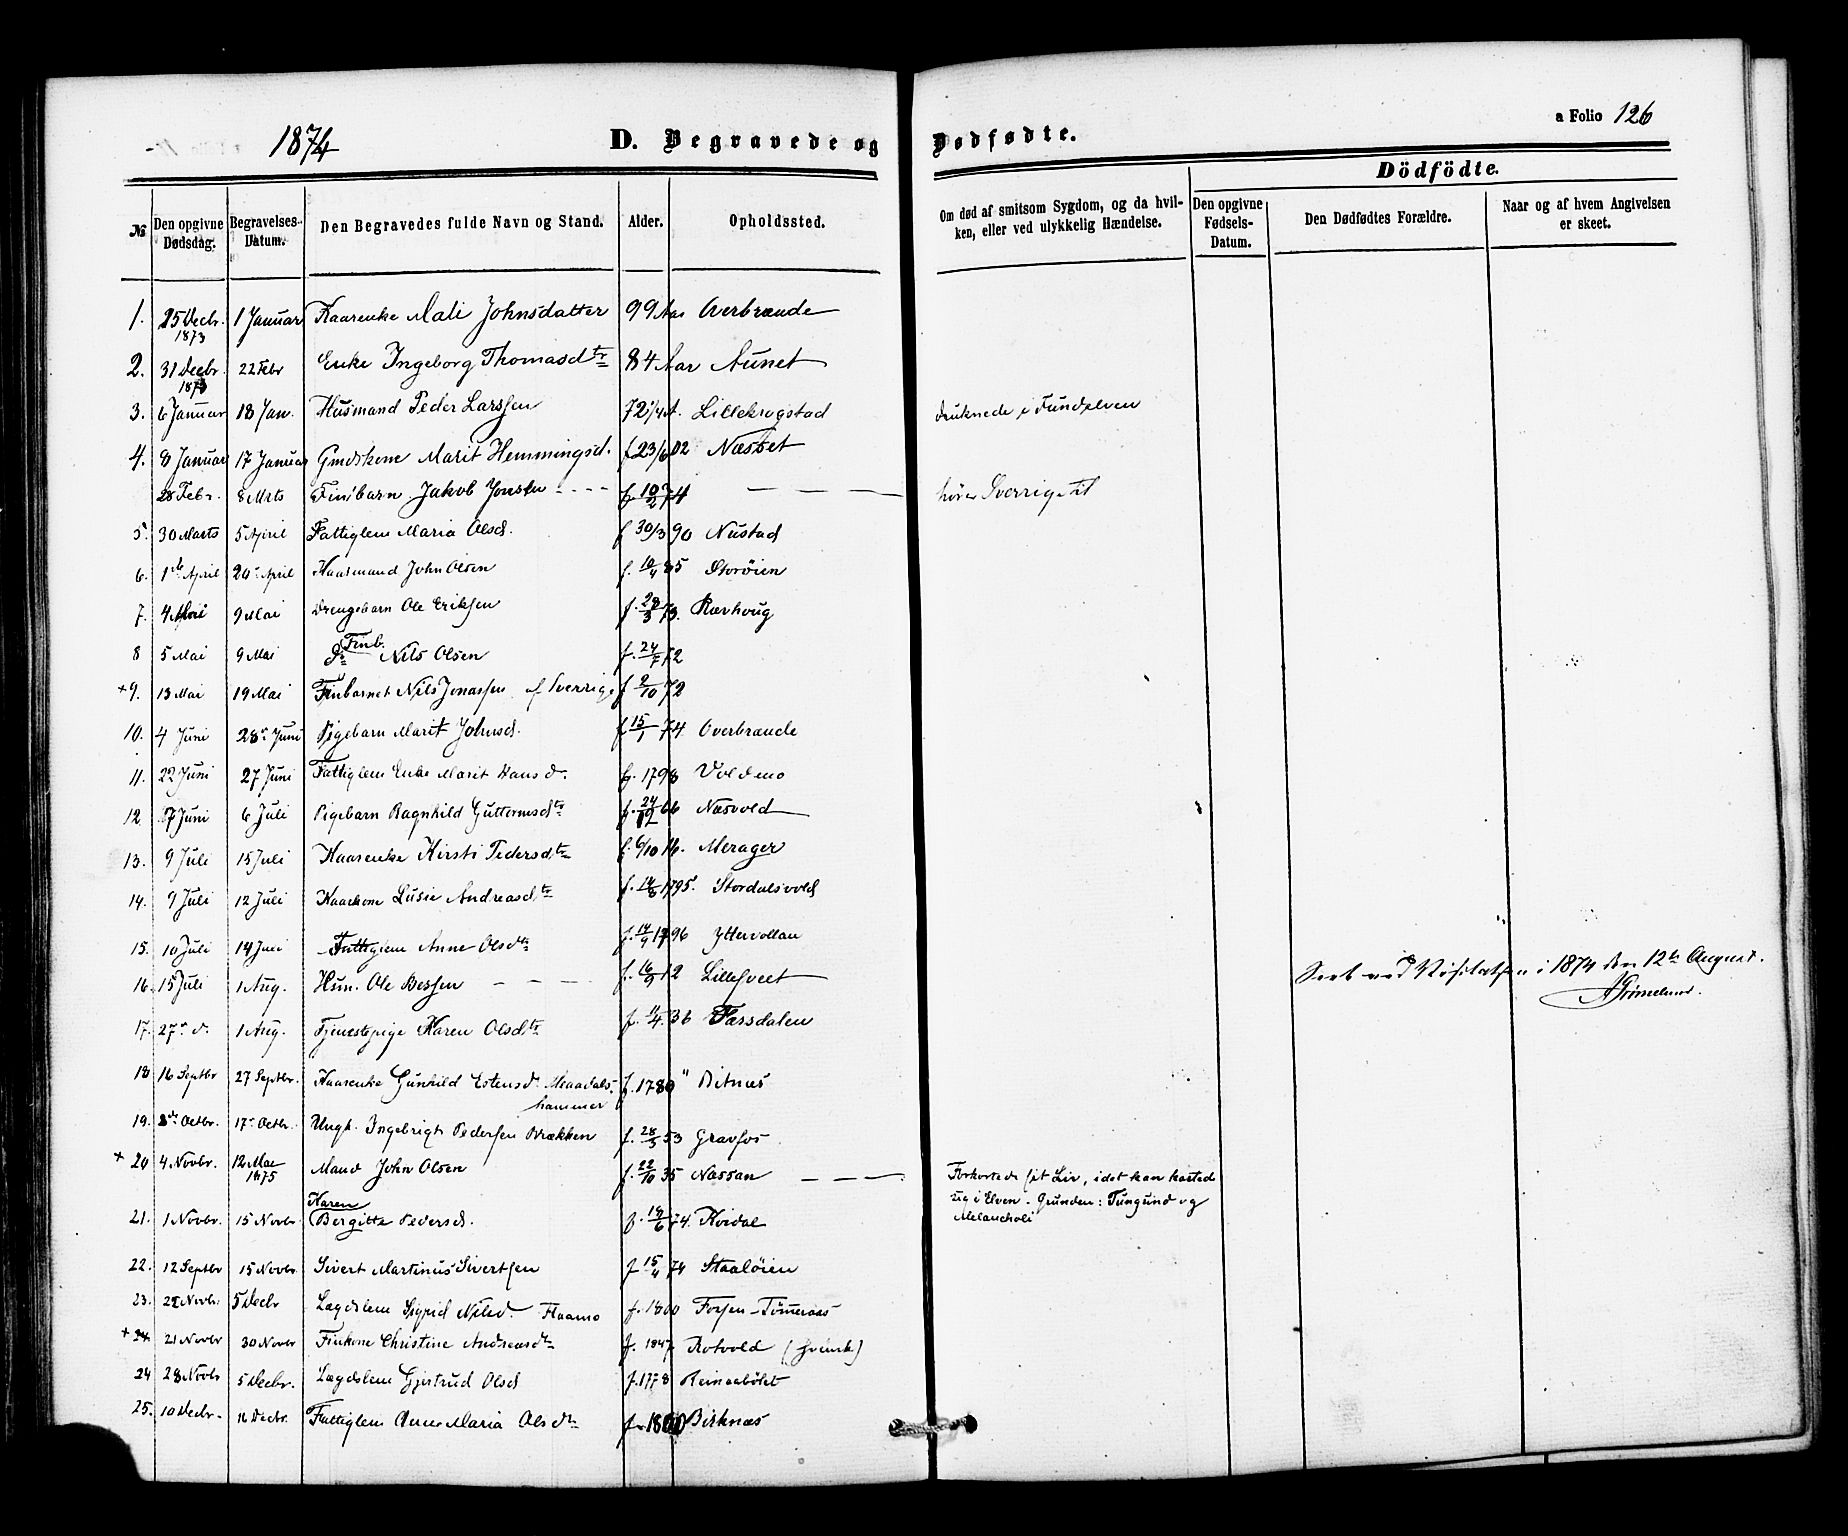 1874
D. Begravede og Dødfødte.
a Folio 126
Dödfödte.
№
Den opgivne Dødsdag.
Begravelses-Datum.
Den Begravedes fulde Navn og Stand.
Alder.
Opholdssted.
Om død af smitsom Sygdom, og da hvil-
ken, eller ved ulykkelig Hændelse.
Den opgivne Fødsels-Datum.
Den Dødfødtes Forældre.
Naar og af hvem Angivelsen
er skeet.
1. 25 Decbr. 1873 1 Januar Kaarenke Mali Johnsdatter 99 Aar Overbrænde
2. 31 Decbr. 1873 22 Febr Enke Ingeborg Thomasdtr 84 Aar Aunet
3. 6 Januar 18 Jan. Husmand Peder Larssen 72 1/4 A. Lillekrogstad druknede i Fundelven
4. 8 Januar 17 Januar Gmdskone Marit Hemmingsd. f 23/6 02 Næsset
28 Febr. 8 Mrts Finbarn Jakob Jonsen - - - f. 10/2 74 — — — hører Sverrige til
5. 30 Marts 5 April Fattiglem Maria Olsd. f 30/3 90 Nustad
6. 1ste April 20 April Kaarmand John Olsen f. 10/4 85 Storøien
7. 4 Mai 9 Mai Drengebarn Ole Eriksen f. 29/3 73. Rævhoug
8 5 Mai 9 Mai Do Finb. Nils Olsen f. 24/7 72
+9. 13 Mai 19 Mai Finbarnet Nils Jonassen af Sverrige f 2/10 72
10. 4 Juni 28 Juni Pigebarn Marit Johnsd. f. 15/1 74. Overbrænde
11. 22 Juni 27 Juni Fattiglem Enke Marit Hansd. f. 1798 Voldmo
12 7 Juni 6 Juli Pigebarn Ragnhild Guttormsdtr f. 24/12 66 Næsvold
13. 9 Juli 15 Juli Kaarenke Kirsti Pedersdtr f. 6/10 16. Merager
14. 9 Juli 12 Juli Kaarkone Lusie Andreasdtr f. 1795. Stordalsvold
15. 10 Juli 14 Juli Fattiglem Anne Olsdtr f. 14/9 1796 Yttervollan
16. 15 Juli 1 Aug. Hun. Ole Bessen - - - f. 16/9 12 Lillefveet
17. 27 d. 1 Aug. Tjenestepige Karen Olsdtr f. 11/4. 36 Færsdalen
1874 den 12te August.
18 16 Septbr 27 Septbr. Kaarenke Gunhild Estensd. Meraadals-
hammer f. 1780 " Bitnæs
19. Octbr. 17 Octbr. Ungk. Ingebrigt Pedersen Brækken f. 28/5 53 Gravfos
+ 20 4 Novbr. 12 Mai 1875 Mand John Olsen f. 22/10 35 Næssan — — — Forkortede sit Liv, idet han kasted
sig i Elven. Grunden: Tungsind og
Melancholi
21. 1 Novbr. 15 Novbr Karen Bergitte Pedersd. f. 14/6 74. Kvidal
22. 12 Septbr 15 Novbr. Sivert Martinus Sivertsen f 15/4 74 Staaløien
23. 22 Novbr. 5 Decbr Lægdslem Sigrid Nilsd. Flaamo f. 1800 Fossen-Tømeraas
+ 24 21 Novbr 30 Novbr Finkone Christine Andreasdtr f. 1847 Rotvold (svensk)
24 28 Novbr 5 Decbr. Lægdslem Gjertrud Olsd f. 1778 Reinaabølet
25. 10 Decbr. 16 Decbr. Fattiglem Ane Maria Olsdtr f. 1800 Birknæs